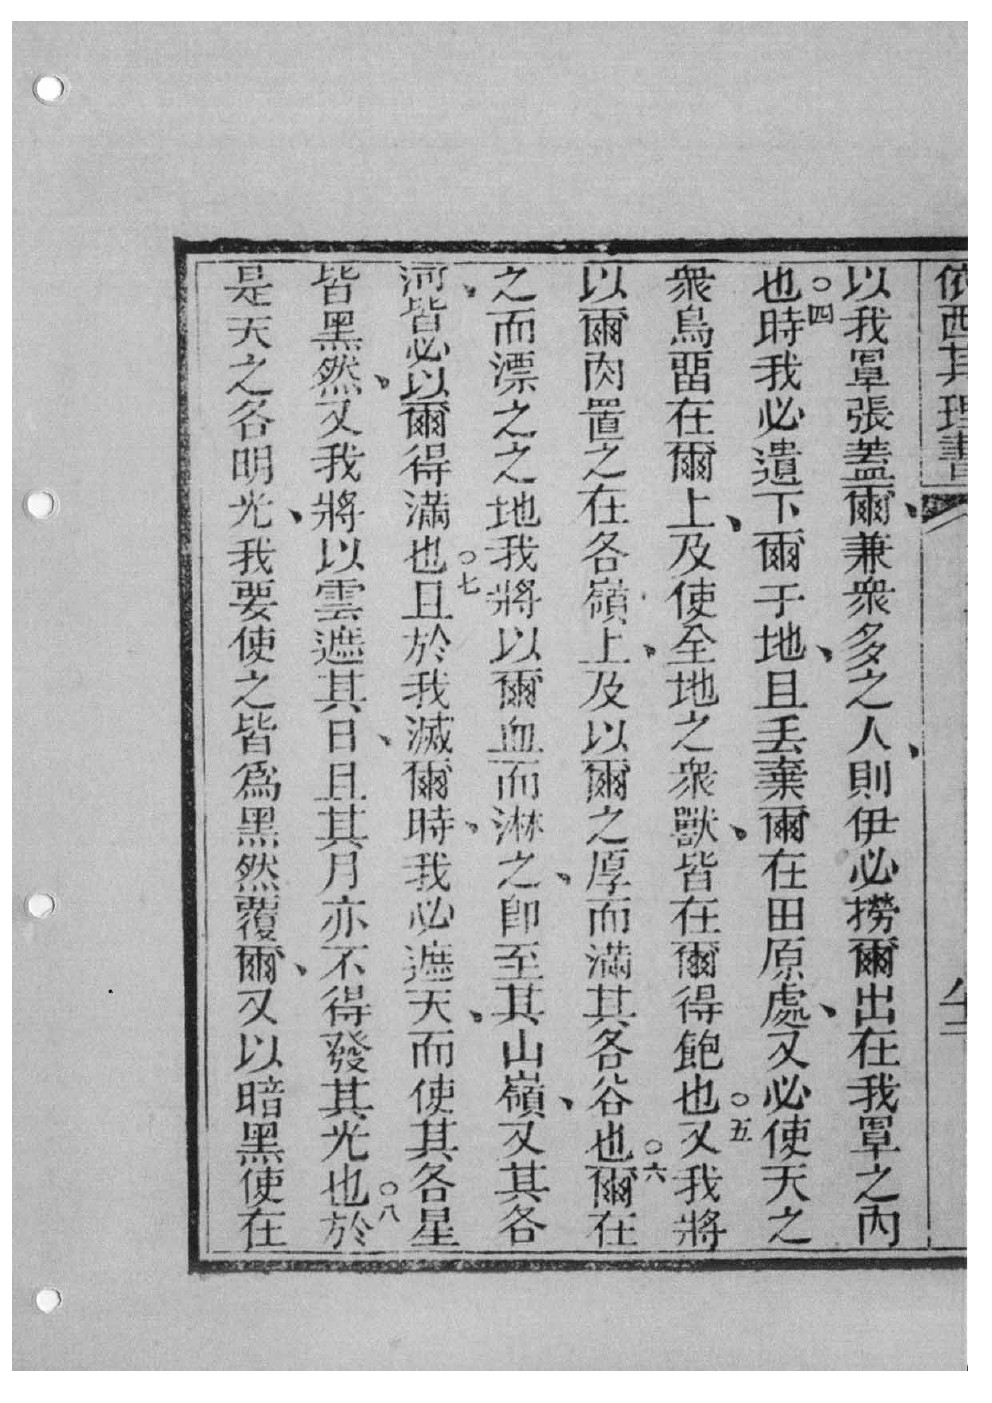 依西其理書
以我罩張蓋爾、兼衆多之人、則伊必撈爾出在我罩之內
也○四時我必遺下爾于地、且丟棄爾在田原處、又必使天之
衆鳥畱在爾上、及使至地之衆獸、皆在爾得飽也○五又我將
以爾肉置之在各嶺上、及以爾之厚而滿其各谷也○六爾在
之而漂之之地我將以爾血而淋之、卽至其山嶺、又其各
河、皆必以爾得滿也○七且於我滅爾時、我必遮天、而使其各星
皆黑然、又我將以雲遮其日、且其月亦不得發其光也○八於
是天之各明光、我要使之皆爲黑然覆爾、又以暗黑使在